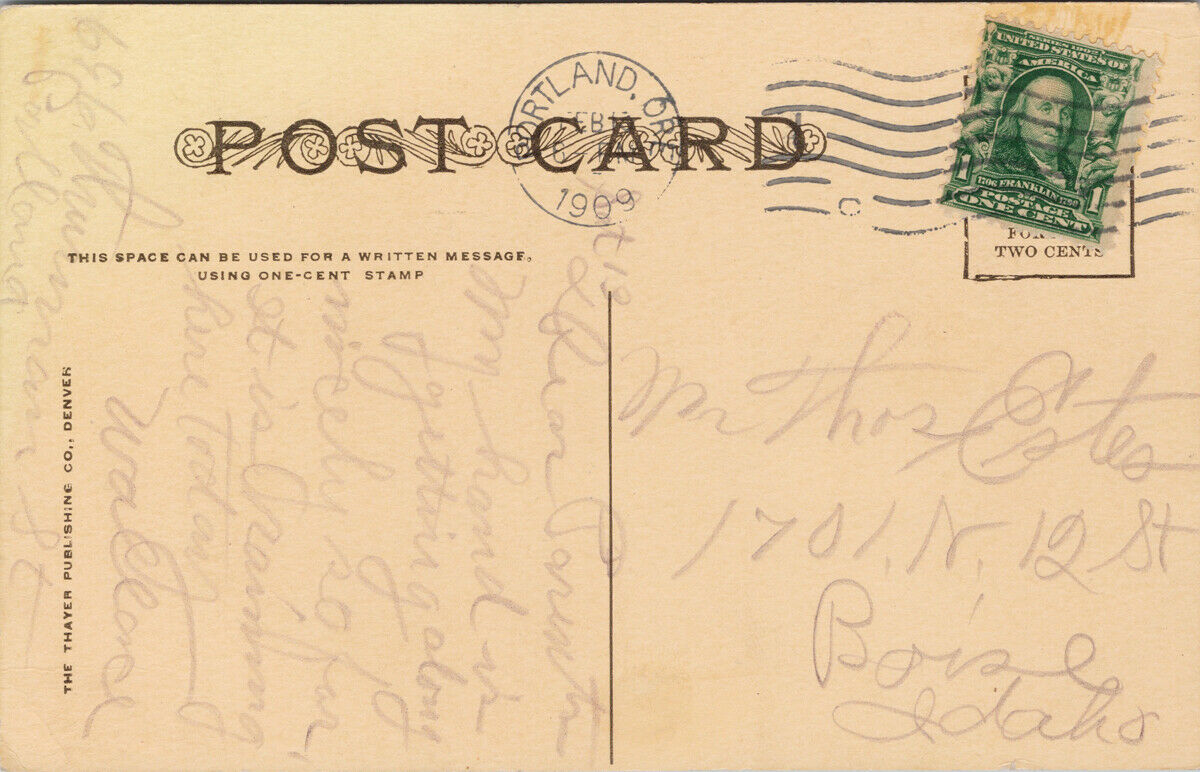 POST CARD
PORTLAND, ORE
FEB
1909
C
SERIES 1902
UNITED STATES OF
AMERICA
1706 FRANKLIN 1790
POSTAGE
1 ONE CENT 1
TWO CENTS
THIS SPACE CAN BE USED FOR A WRITTEN MESSAGE,
USING ONE-CENT STAMP
THE THAYER PUBLISHING CO., DENVER
Dear Parents
My hand is
getting along
nicely so far,
it is raining
here today
Wallace
Portland
Mr Thos Estes
1701 N. 12 St
Boise
Idaho